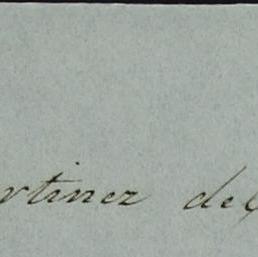 rtinez del